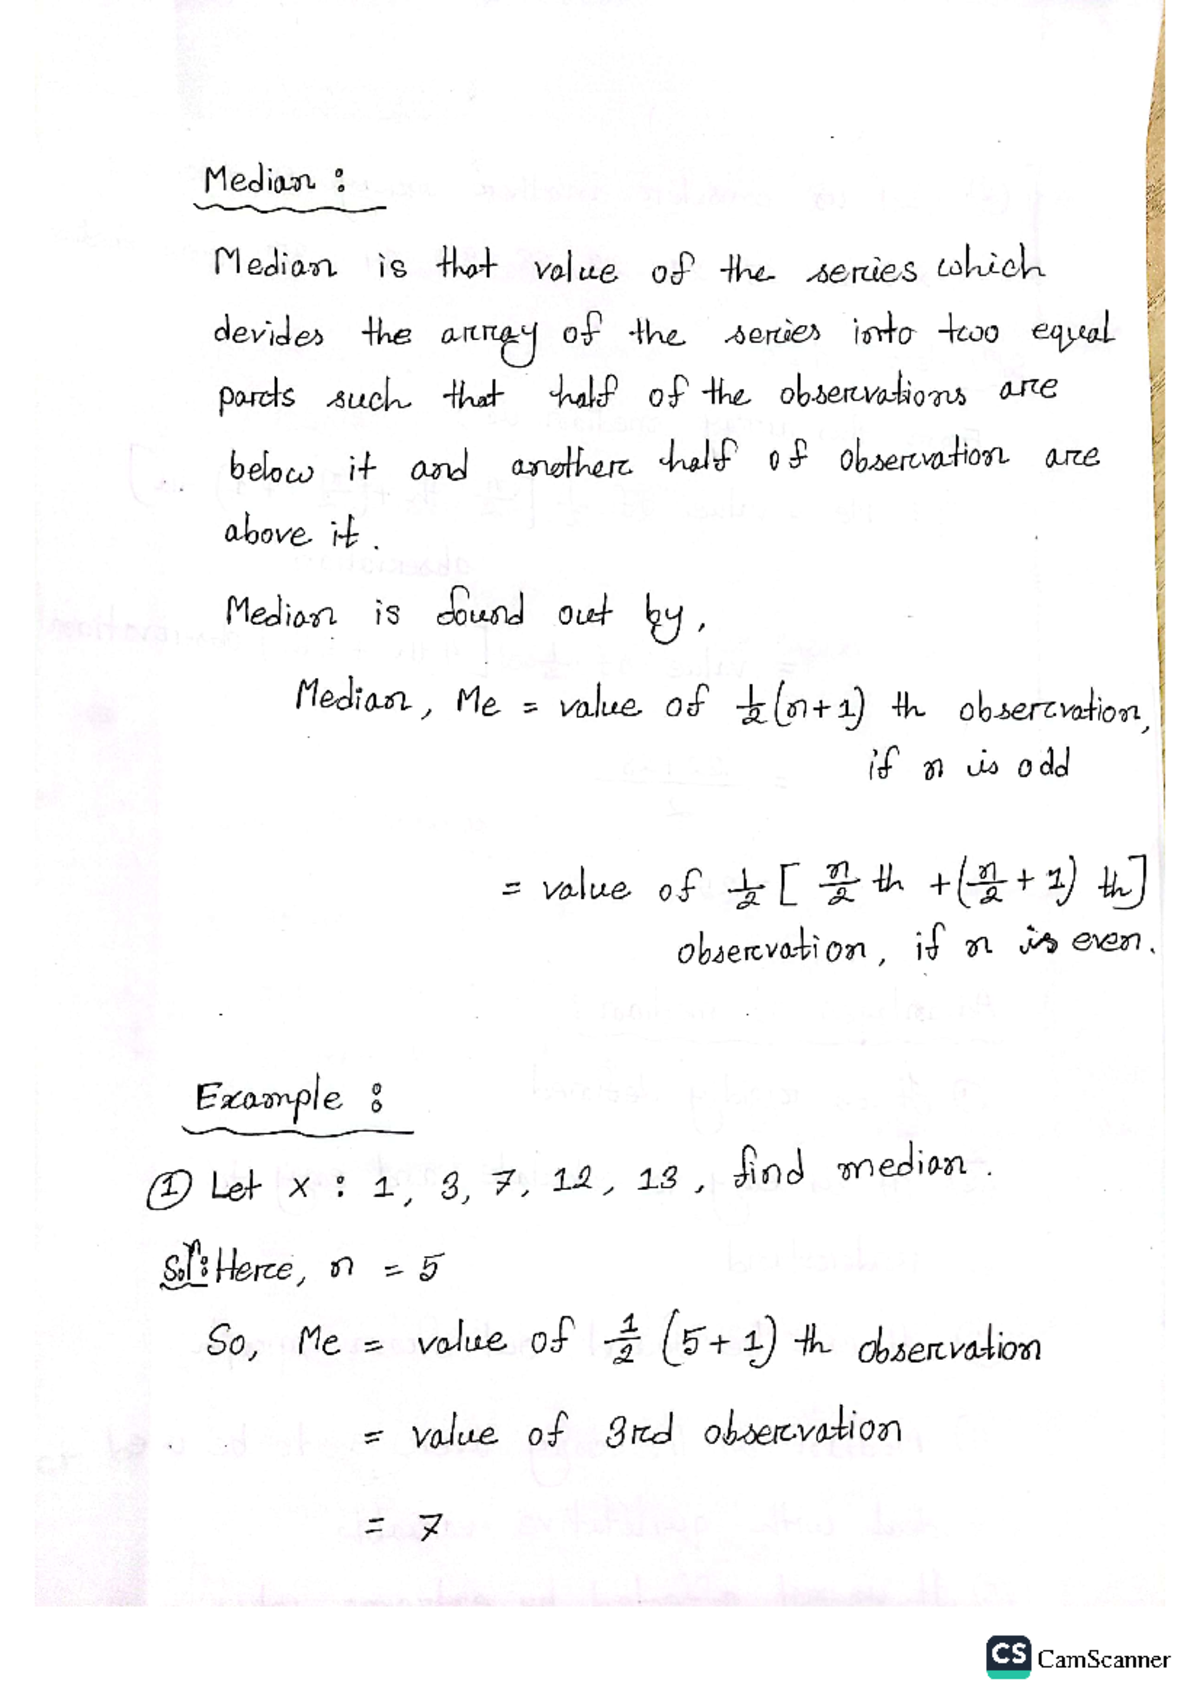 Median :
Median is that value of the series which
devides the array of the series into two equal
parts such that half of the observations are
below it and another half of observation are
above it.
Median is found out by,
Median, Me = value of 1/2 (n+1) th observation,
if n is odd
= value of 1/2 [ n/2 th + (n/2 + 1) th]
observation, if n is even.
Example :
① Let x : 1, 3, 7, 12, 13, find median.
Solⁿ: Here, n = 5
So, Me = value of 1/2 (5+1) th observation
= value of 3rd observation
= 7
CS CamScanner